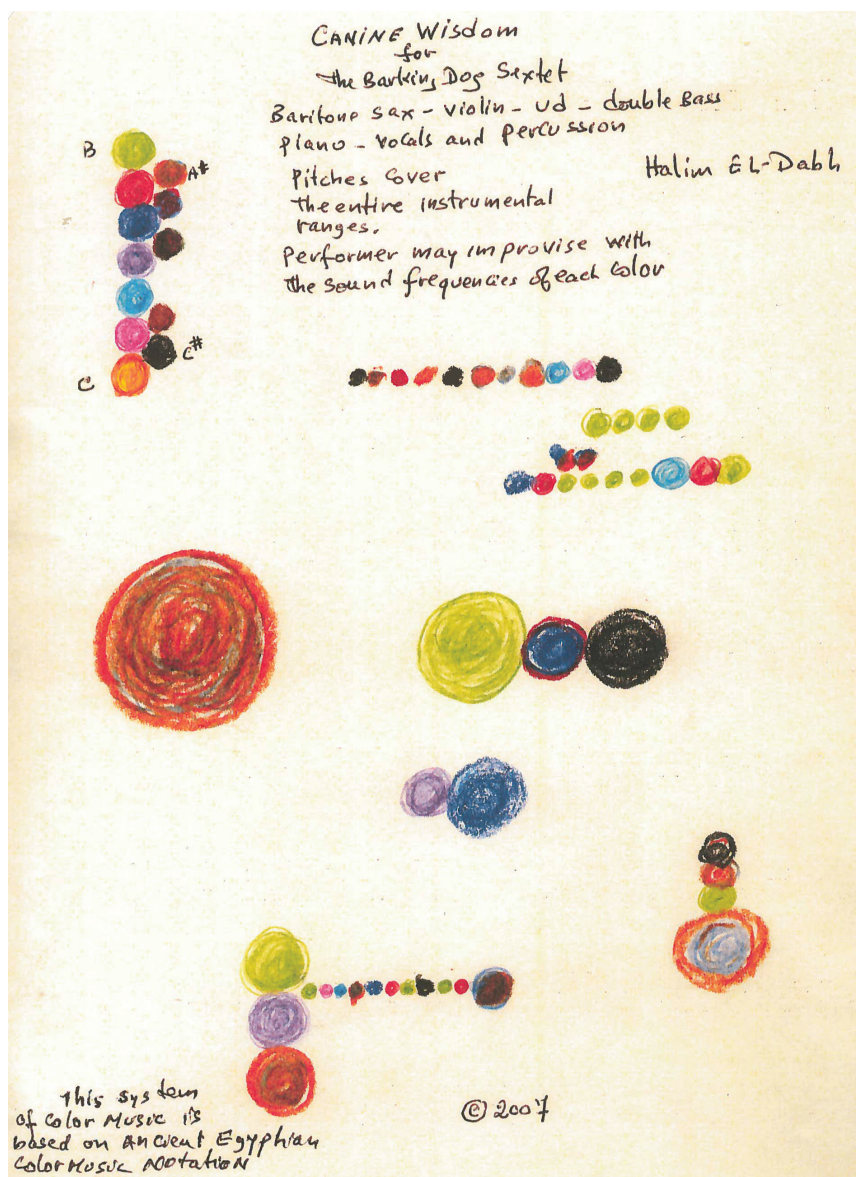 CANINE Wisdom
for
the Barking Dog Sextet
Baritone sax - violin - ud - double Bass
piano - vocals and percussion
Halim EL-Dabh
Pitches cover
the entire instrumental
ranges.
performer may improvise with
the sound frequencies of each color
B
A#
C#
C
This system
of color Music is
based on ancient Egyphian
color music notation
© 2007